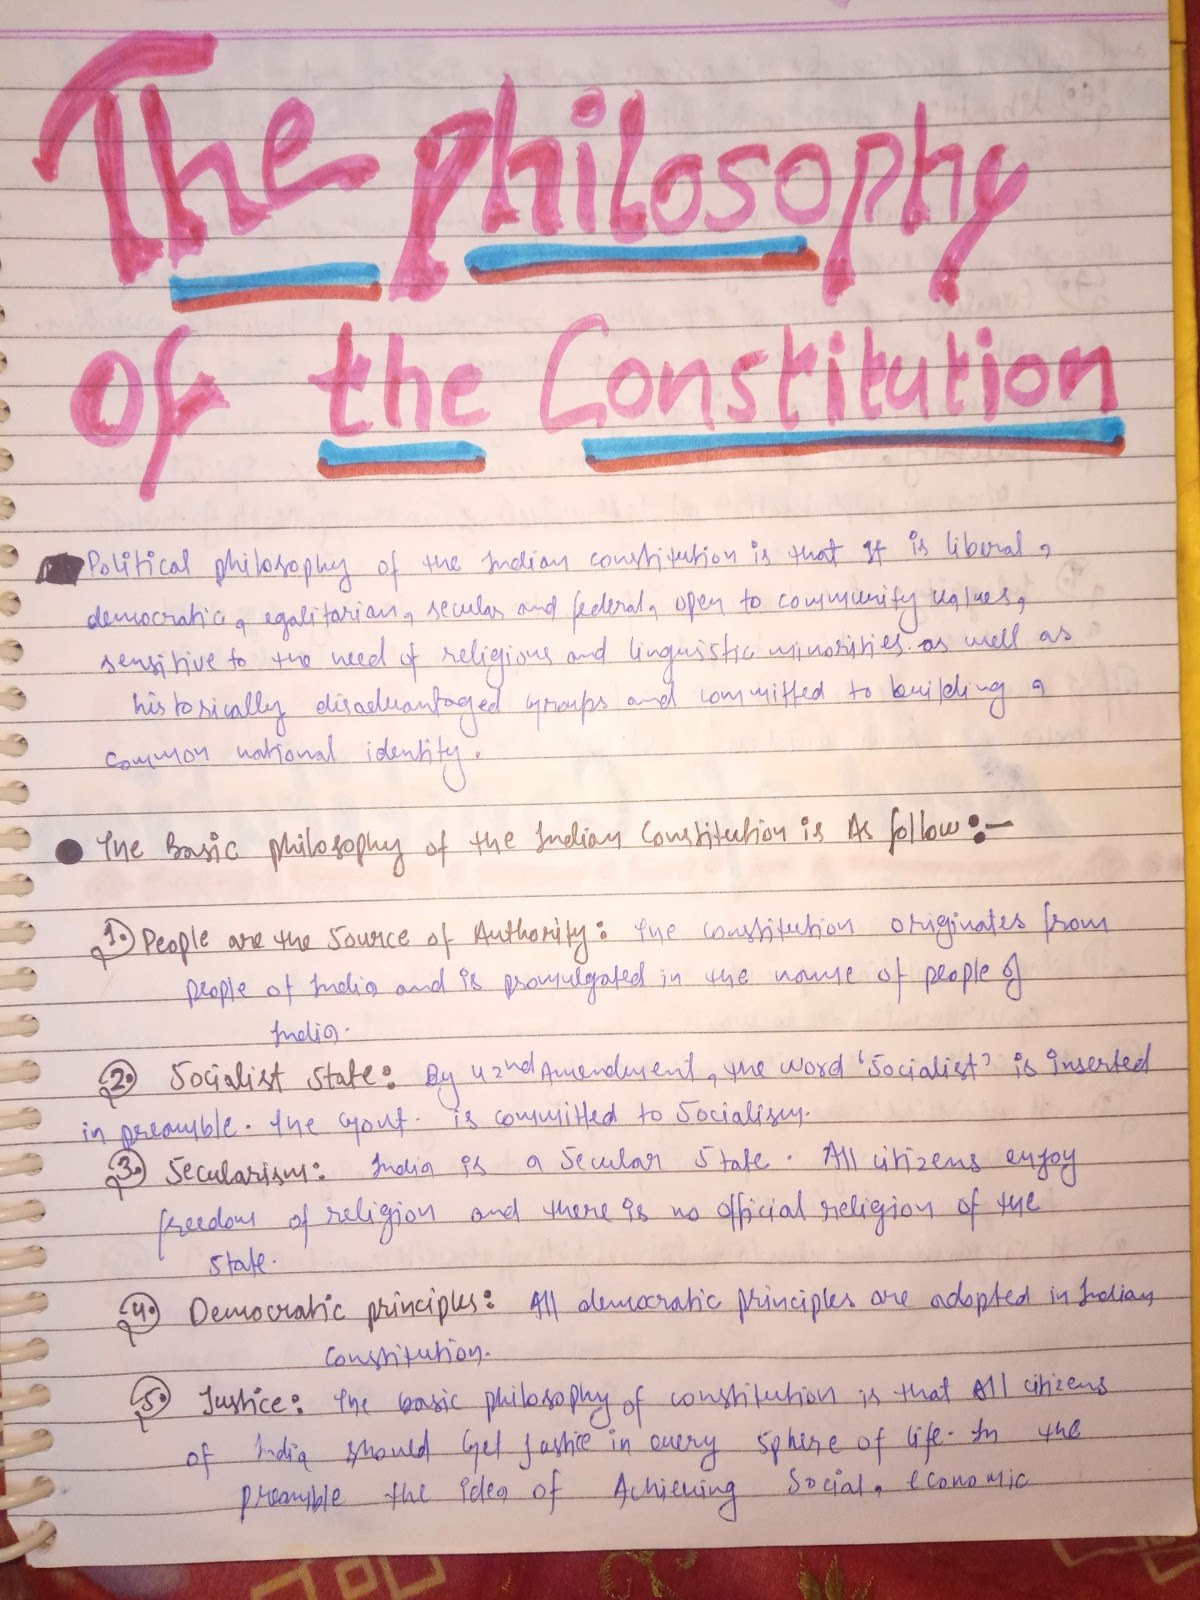 The philosophy
of the Constitution
Political philosophy of the Indian constitution is that It is liberal,
democratic, egalitarian, secular and federal, open to community values,
sensitive to the need of religious and linguistic minorities. as well as
historically disadvantaged groups and committed to building a
common national identity.
The Basic philosophy of the Indian Constitution is As follow:-
1. People are the Source of Authority: The constitution originates from
people of India and is promulgated in the name of people of
India.
2. Socialist State: By 42nd Amendment, the word 'Socialist' is inserted
in preamble. The Govt. is committed to Socialism.
3. Secularism: India is a Secular State. All citizens enjoy
freedom of religion and there is no official religion of the
State.
4. Democratic principles: All democratic principles are adopted in Indian
Constitution.
5. Justice: The basic philosophy of constitution is that All citizens
of India should Get Justice in every sphere of life. In the
preamble the idea of Achieving Social, economic